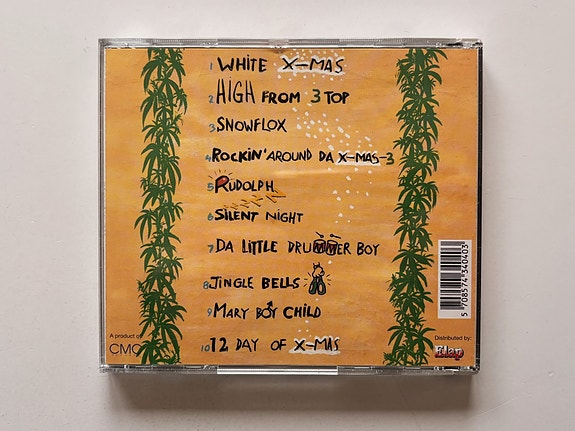 1 WHITE X-MAS
2 HIGH FROM 3 TOP
3 SNOWFLOX
4 ROCKIN' AROUND DA X-MAS-3
5 RUDOLPH
6 SILENT NIGHT
7 DA LITTLE DRUMMER BOY
8 JINGLE BELLS
9 MARY BOY CHILD
10 12 DAY OF X-MAS
5 708574 340403
A product of:
CMC
Distributed by:
Elap